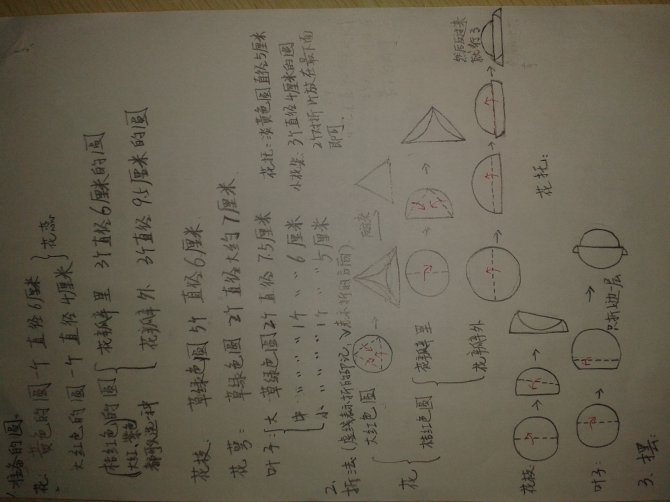 1.准备的圆。
花：黄色的圆 一个 直径6厘米
大红色的圆 一个 直径4厘米 } 花蕊
桔红色的圆 { 花瓣里 3个直径6厘米的圆
大红,紫色 花瓣外 3个直径9.5厘米的圆
都可以选一种
花枝： 草绿色圆 5个 直径6厘米
花萼： 草绿色圆 2个 直径大约7厘米
叶子：{ 大 草绿色圆2个 直径7.5厘米
中 〃 〃 〃 〃 1个 〃 〃 6厘米
小 〃 〃 〃 〃 1个 〃 〃 5厘米
花托：淡黄色圆 直径5厘米
小花朵：3个直径4厘米的圆
2个对折 1个放在最下面
即可。
2.折法（虚线表示折的印记，V表示折的方向）
花 { 大红色圆
桔红色圆 { 花瓣里
花瓣外
然后反过来
就行了
花枝
花托：
叶子：
只折边一层
3.摆：